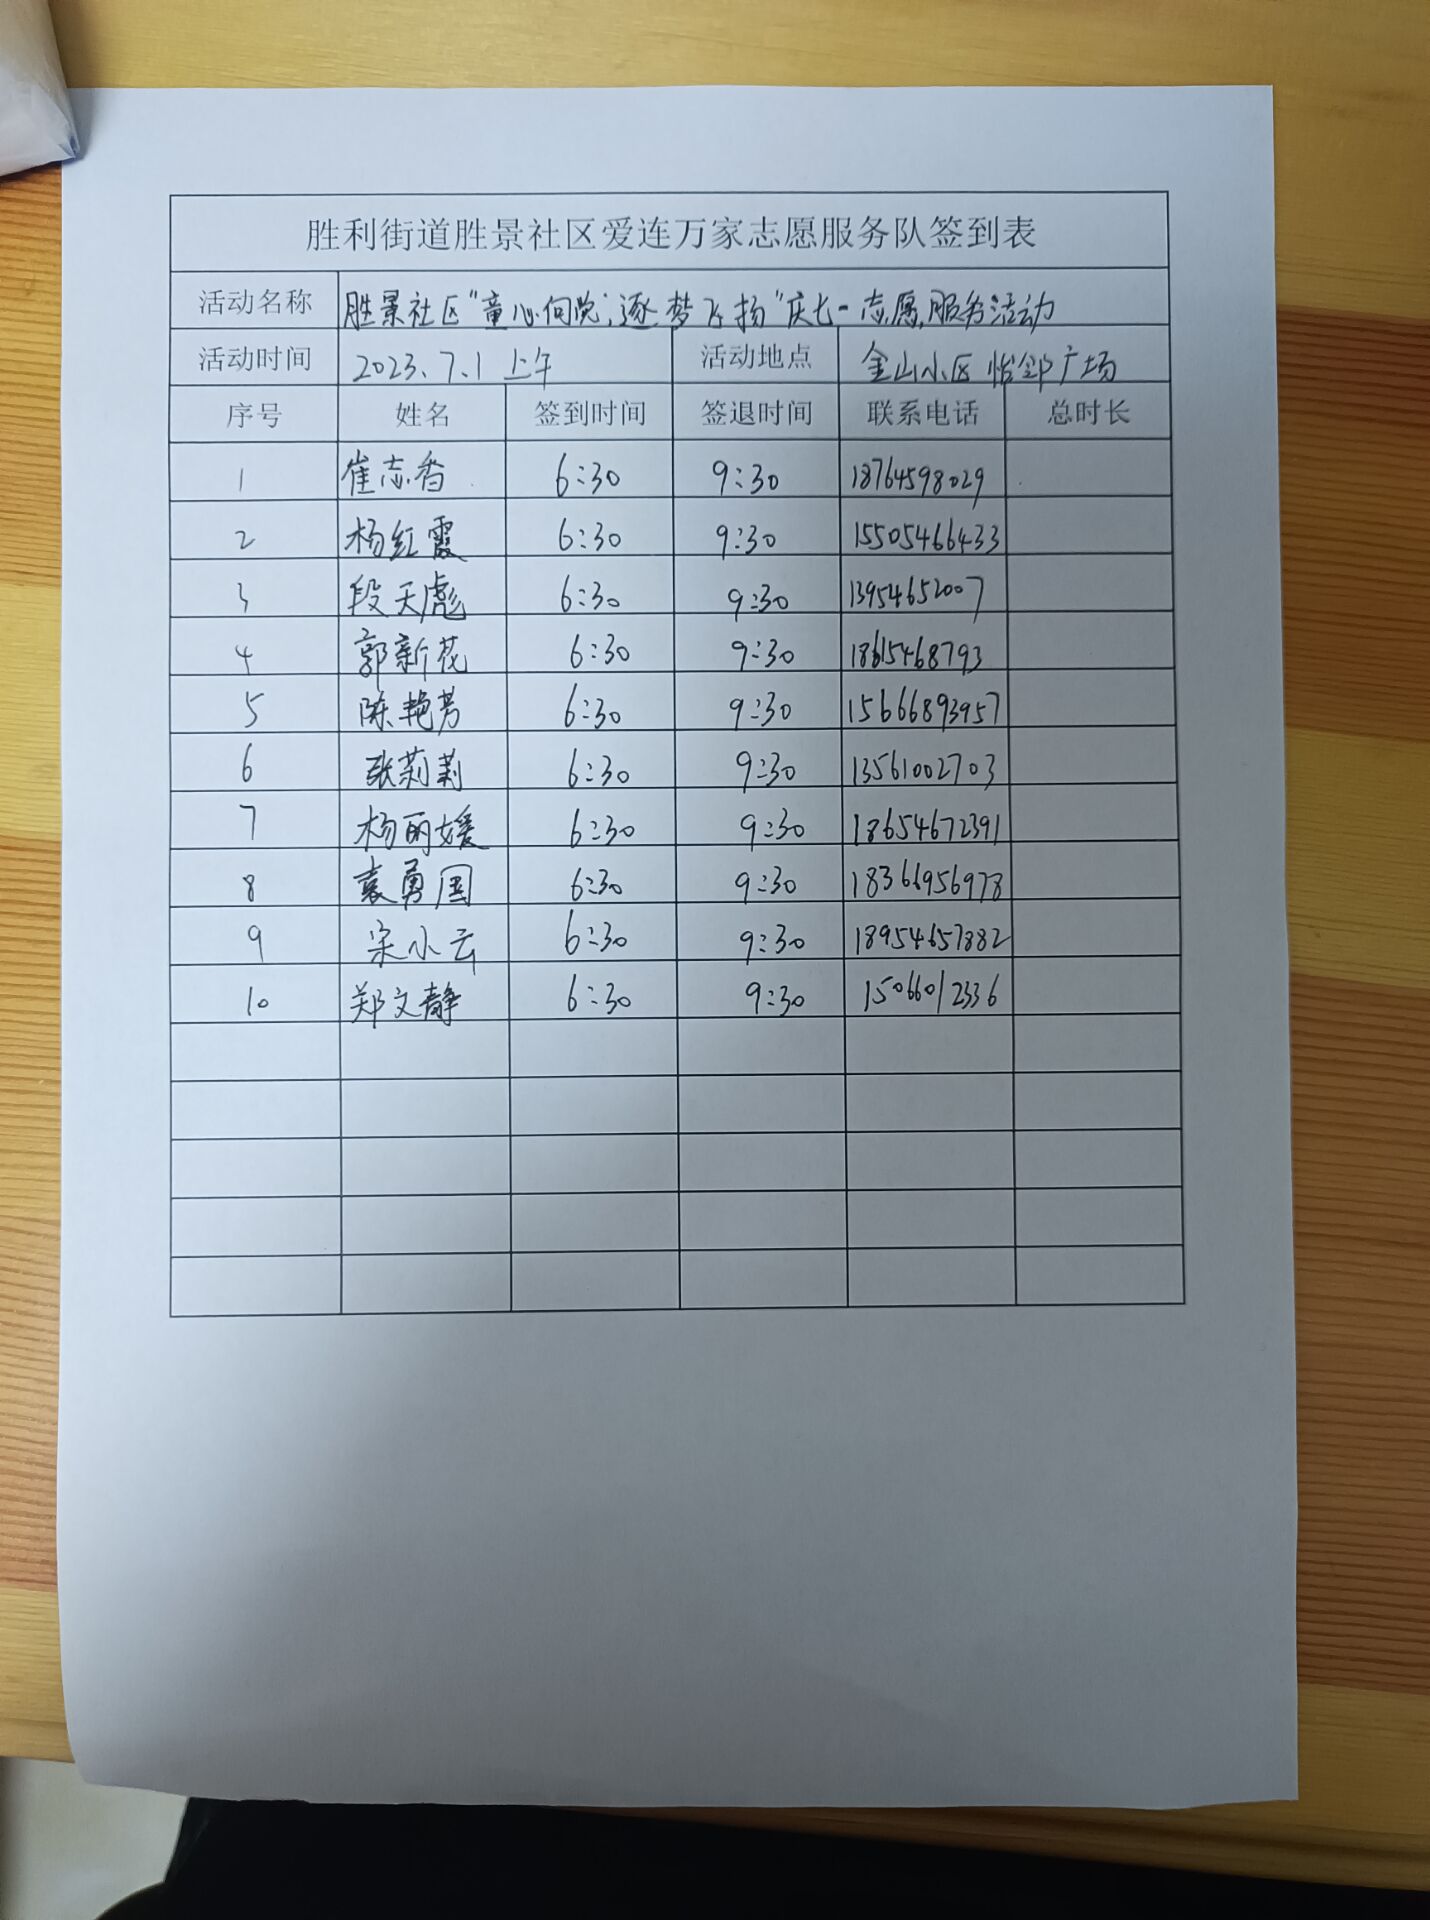 胜利街道胜景社区爱连万家志愿服务队签到表
活动名称 胜景社区“童心向党,逐梦飞扬”庆七一志愿服务活动
活动时间 2023.7.1上午 活动地点 金山小区怡邻广场
序号 姓名 签到时间 签退时间 联系电话 总时长
1 崔志香 6:30 9:30 18764598029
2 杨红霞 6:30 9:30 15505466433
3 段天彪 6:30 9:30 13954652007
4 郭新花 6:30 9:30 18615468793
5 陈艳芳 6:30 9:30 15666893957
6 张莉莉 6:30 9:30 13561002703
7 杨丽媛 6:30 9:30 18654672391
8 袁勇国 6:30 9:30 18366956978
9 宋小云 6:30 9:30 18954657882
10 郑文静 6:30 9:30 15066012336